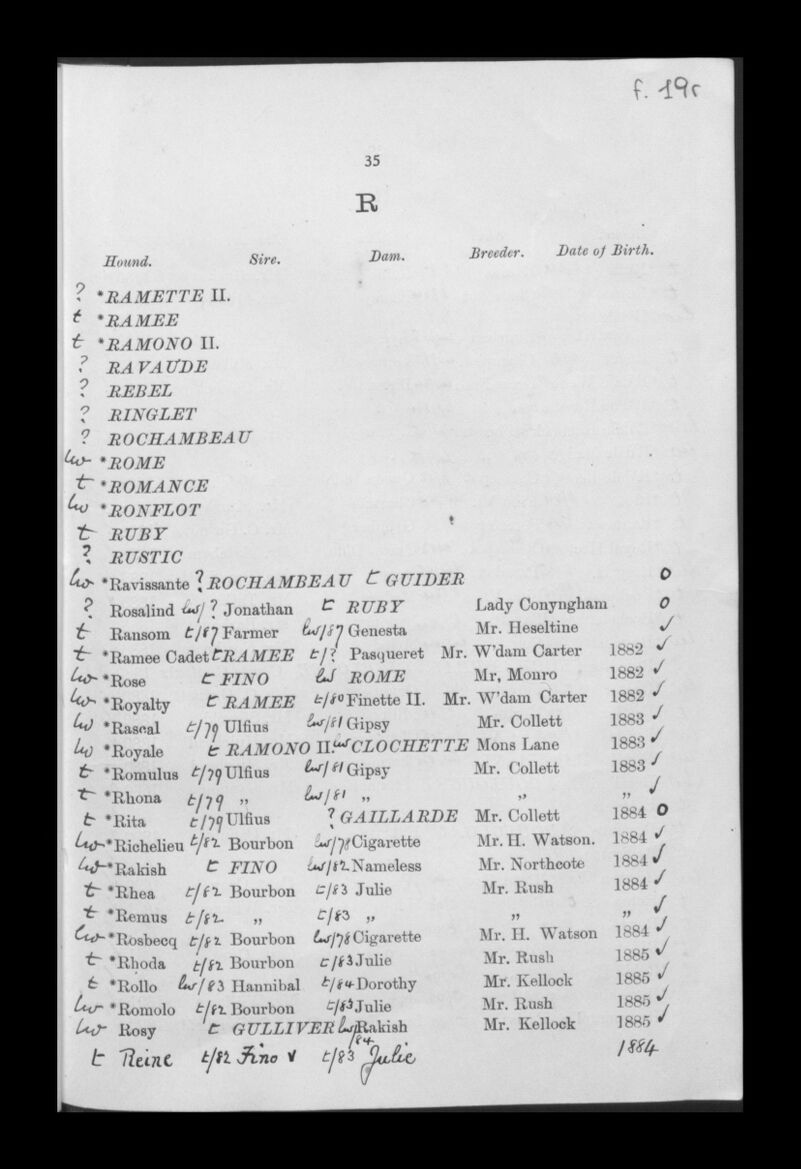 f. 19r
35
R
Hound. Sire. Dam. Breeder. Date of Birth.
? *RAMETTE II.
t *RAMEE
t *RAMONO II.
? RAVAUDE
? REBEL
? RINGLET
? ROCHAMBEAU
lw *ROME
t *ROMANCE
lw *RONFLOT
t RUBY
? RUSTIC
lw *Ravissante ? ROCHAMBEAU t GUIDER O
? Rosalind lw/? Jonathan t RUBY Lady Conyngham O
t Ransom t/87 Farmer lw/87 Genesta Mr. Heseltine ✓
t *Ramee Cadet t RAMEE t/? Pasqueret Mr. W'dam Carter 1882 ✓
lw *Rose t FINO lw ROME Mr, Monro 1882 ✓
lw *Royalty t RAMEE t/80 Finette II. Mr. W'dam Carter 1882 ✓
lw *Rascal t/79 Ulfius lw/81 Gipsy Mr. Collett 1883 ✓
lw *Royale t RAMONO II. lw CLOCHETTE Mons Lane 1883 ✓
t *Romulus t/79 Ulfius lw/81 Gipsy Mr. Collett 1883 ✓
t *Rhona t/79 „ lw/81 „ „ „ ✓
t *Rita t/79 Ulfius ? GAILLARDE Mr. Collett 1884 O
lw *Richelieu t/82 Bourbon lw/78 Cigarette Mr. H. Watson. 1884 ✓
lw *Rakish t FINO lw/82 Nameless Mr. Northcote 1884 ✓
t *Rhea t/82 Bourbon t/83 Julie Mr. Rush 1884 ✓
t *Remus t/82 „ t/83 „ „ „ ✓
lw *Rosbecq t/82 Bourbon lw/78 Cigarette Mr. H. Watson 1884 ✓
t *Rhoda t/82 Bourbon t/83 Julie Mr. Rush 1885 ✓
t *Rollo lw/83 Hannibal t/84 Dorothy Mr. Kellock 1885 ✓
lw *Romolo t/82 Bourbon t/83 Julie Mr. Rush 1885 ✓
lw Rosy t GULLIVER lw/84 Rakish Mr. Kellock 1885 ✓
t Reine t/82 Fino v t/83 Julie 1884